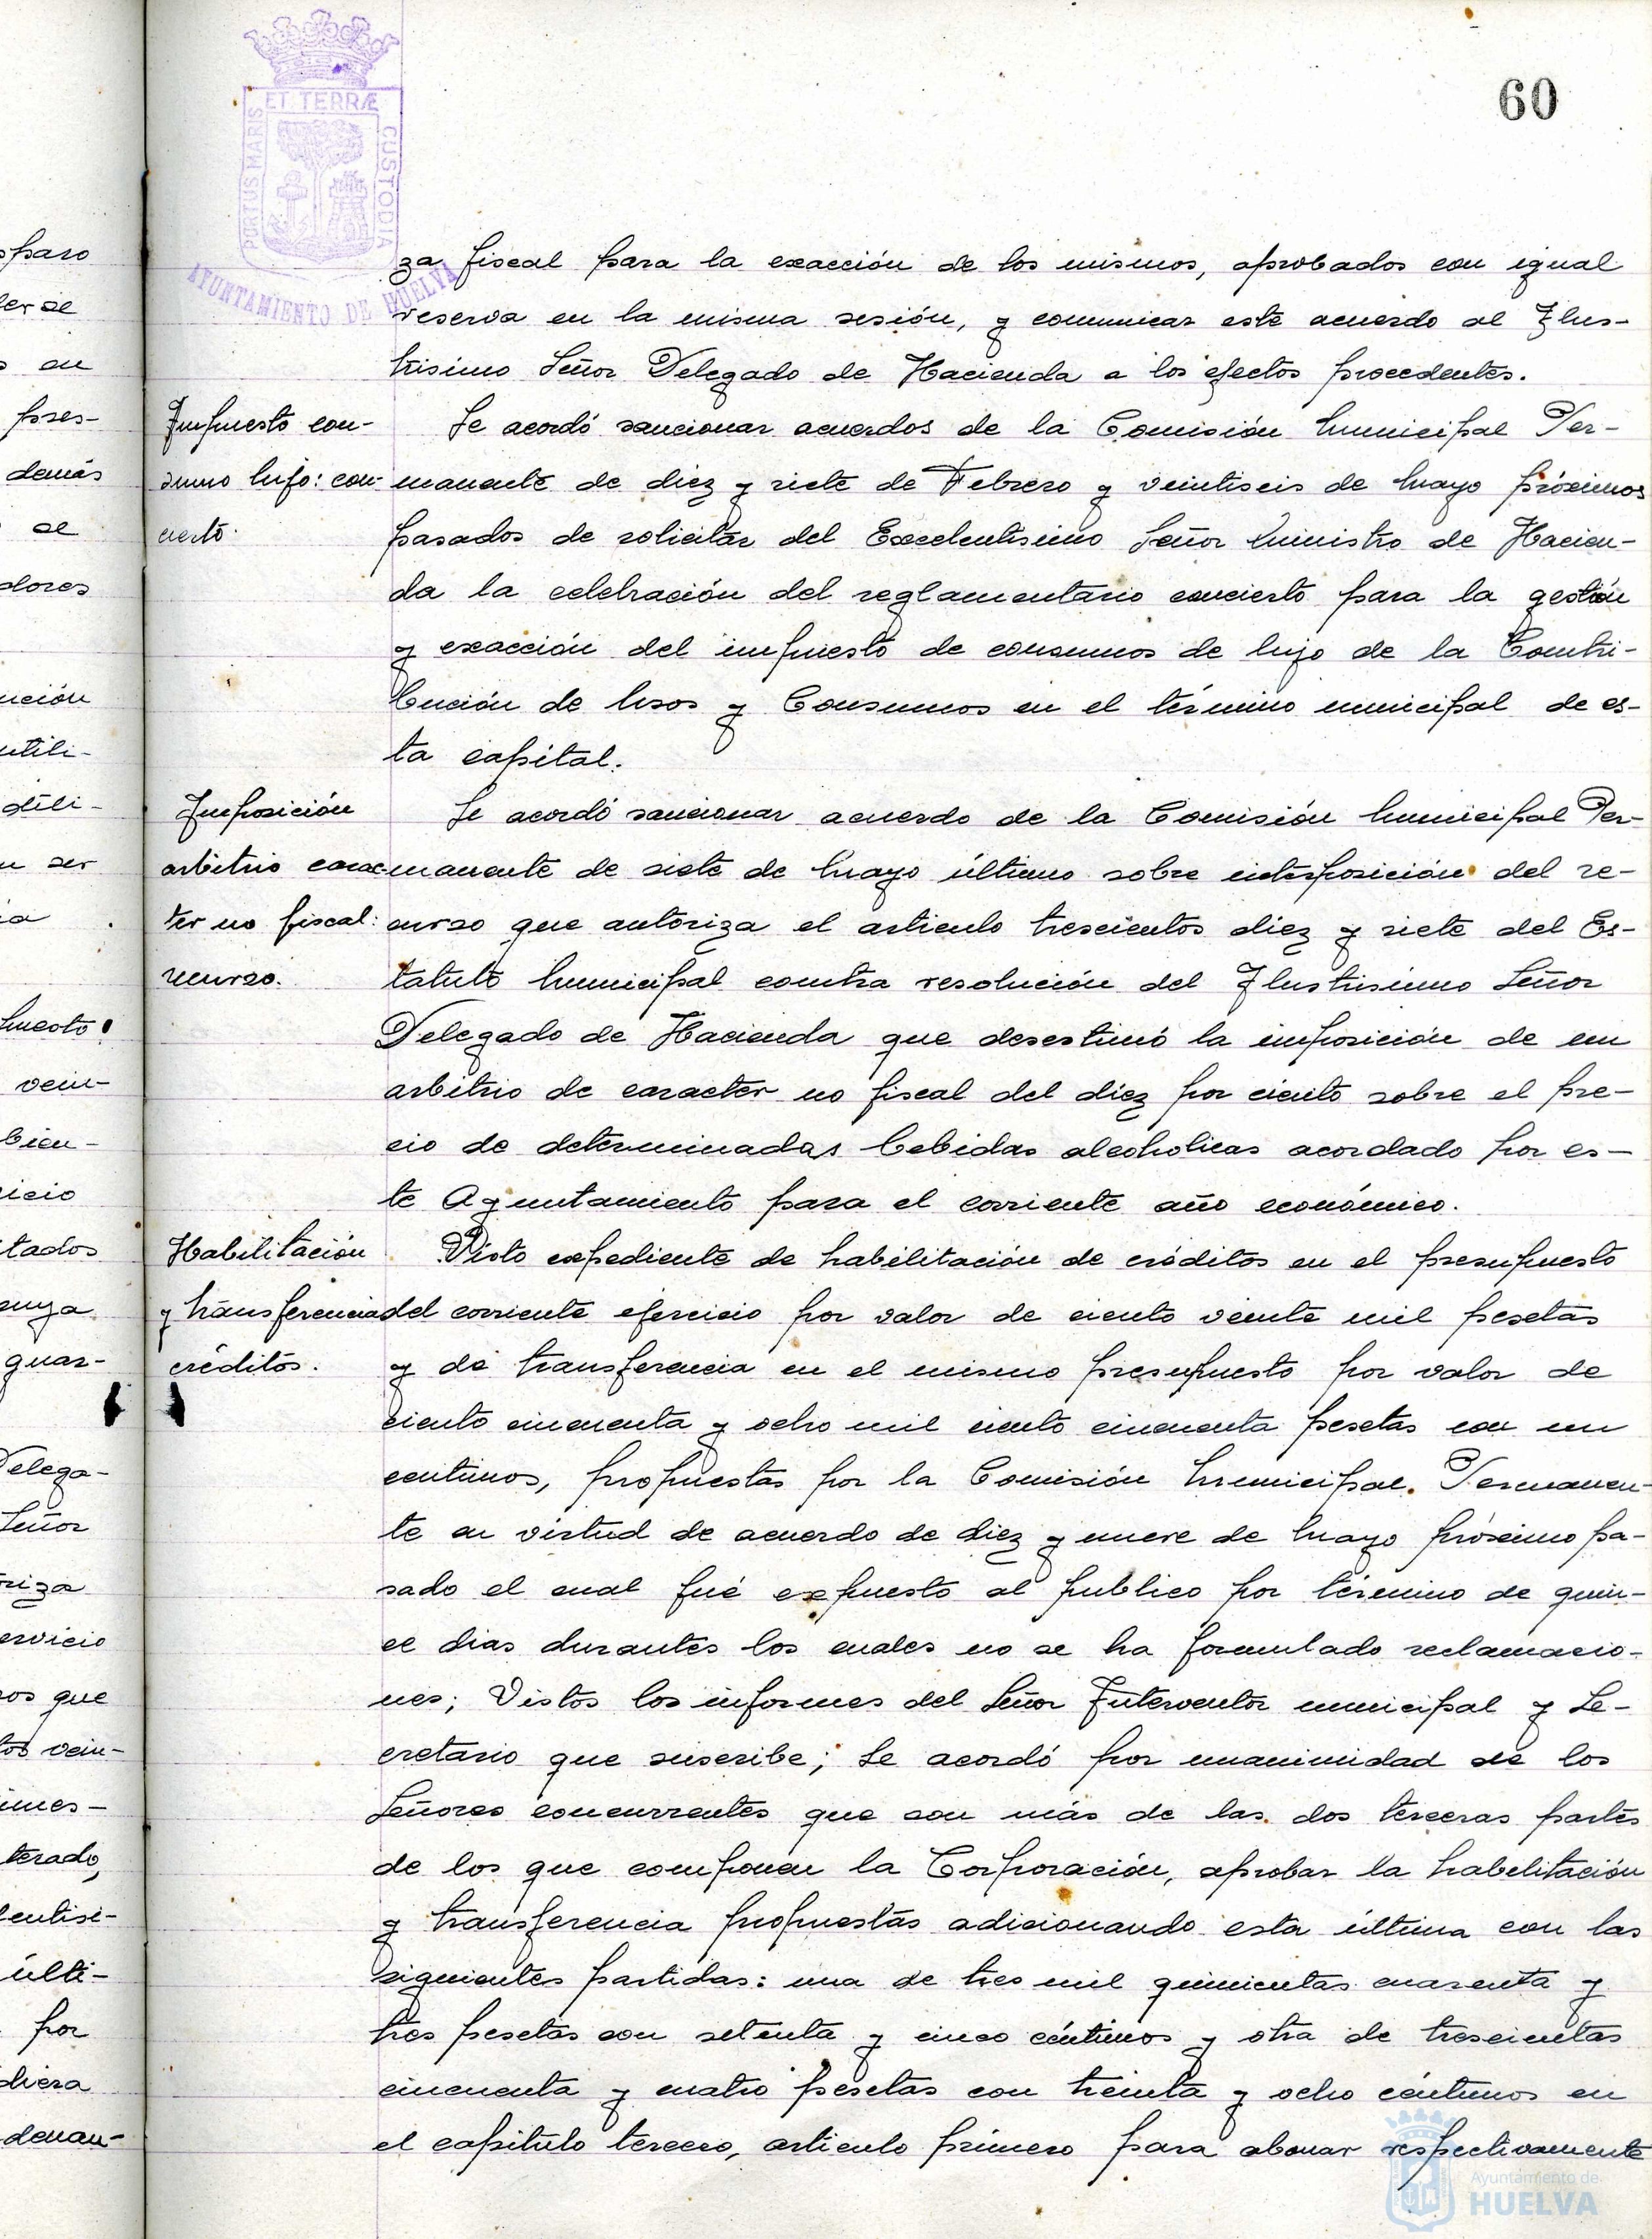 60
ET TERRÆ
PORTUS MARIS
CUSTODIA
AYUNTAMIENTO DE HUELVA
za fiscal para la exacción de los mismos, aprobados con igual
reserva en la misma sesión, y comunicar este acuerdo al Ilus-
trisimo Señor Delegado de Hacienda a los efectos procedentes.
Impuesto con-
sumo lujo: con-
cierto.
Se acordó sancionar acuerdos de la Comisión Municipal Per-
manente de diez y siete de Febrero y veintiseis de Mayo próximos
pasados de solicitar del Excelentisimo Señor Ministro de Hacien-
da la celebración del reglamentario concierto para la gestión
y exacción del impuesto de consumos de lujo de la Contri-
bución de Usos y Consumos en el término municipal de es-
ta capital.
Imposición
arbitrio carac-
ter no fiscal:
recurso.
Se acordó sancionar acuerdo de la Comisión Municipal Per-
manente de siete de Mayo último sobre interposición del re-
curso que autoriza el articulo trescientos diez y siete del Es-
tatuto Municipal contra resolución del Ilustrisimo Señor
Delegado de Hacienda que desestimó la imposición de un
arbitrio de caracter no fiscal del diez por ciento sobre el pre-
cio de determinadas bebidas alcoholicas acordado por es-
te Ayuntamiento para el corriente año económico.
Habilitación
y transferencia
créditos.
Visto expediente de habilitación de créditos en el presupuesto
del corriente ejercicio por valor de ciento veinte mil pesetas
y de transferencia en el mismo presupuesto por valor de
ciento cincuenta y ocho mil ciento cincuenta pesetas con un
centimos, propuestas por la Comisión Municipal Permanen-
te en virtud de acuerdo de diez y nueve de Mayo próximo pa-
sado el cual fué expuesto al publico por término de quin-
ce dias durantes los cuales no se ha formulado reclamacio-
nes; Vistos los informes del Señor Interventor municipal y Se-
cretario que suscribe; Se acordó por unanimidad de los
Señores concurrentes que son más de las dos terceras partes
de los que componen la Corporación, aprobar la habilitación
y transferencia propuestas adicionando esta última con las
siguientes partidas: una de tres mil quinientas cuarenta y
tres pesetas con setenta y cinco céntimos y otra de trescientas
cincuenta y cuatro pesetas con treinta y ocho céntimos en
el capitulo tercero, articulo primero para abonar respectivamente
Ayuntamiento de
HUELVA